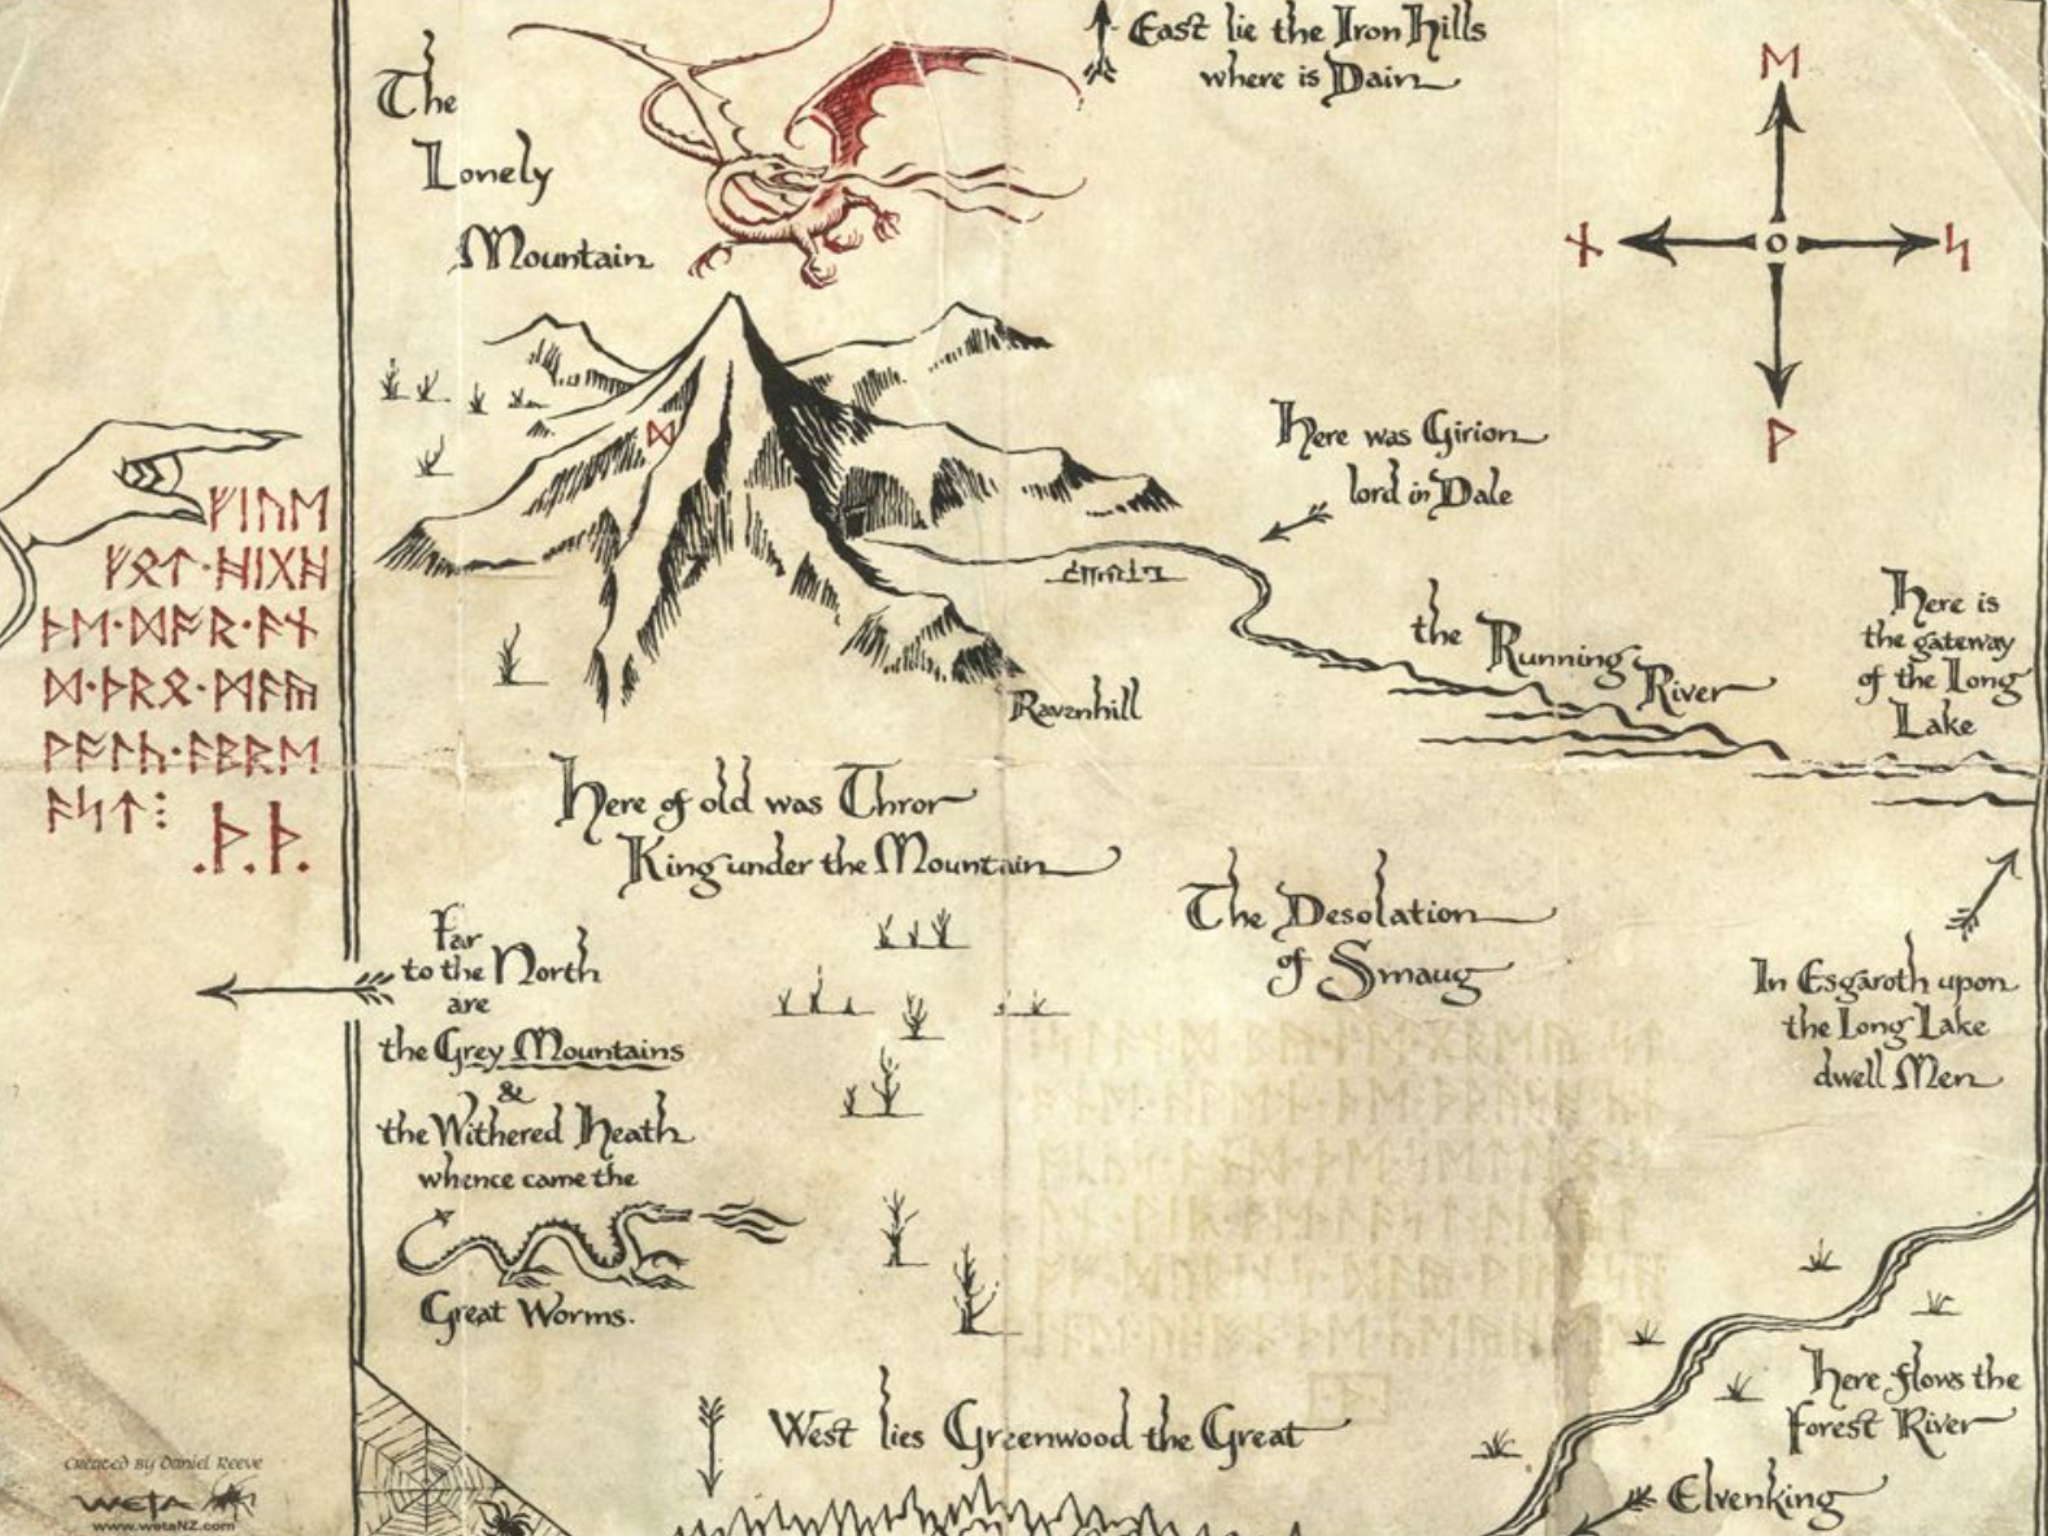 East lie the Iron Hills
where is Dain
The
Lonely
Mountain
ᛖ
ᚾ
ᛋ
ᚹ
ᛞ
Here was Girion
lord in Dale
ᚠᛁᚢᛖ
ᚠᛟᛏ·ᚻᛁᚷᚻ
ᚦᛖ·ᛞᚩᚱ·ᚪᚾ
ᛞ·ᚦᚱᛟ·ᛗᚪᚣ
ᚹᚪᛚᚳ·ᚪᛒᚱᛖ
ᚪᛋᛏ⫶ .ᚦ.ᚦ.
the Running
River
Here is
the gateway
of the Long
Lake
Ravenhill
Here of old was Thror
King under the Mountain
The Desolation
of Smaug
Far
to the North
are
the Grey Mountains
&
the Withered Heath
whence came the
Great Worms.
In Esgaroth upon
the Long Lake
dwell Men
West lies Greenwood the Great
Here flows the
Forest River
Elvenking
Created by Daniel Reeve
WETA
www.wetaNZ.com